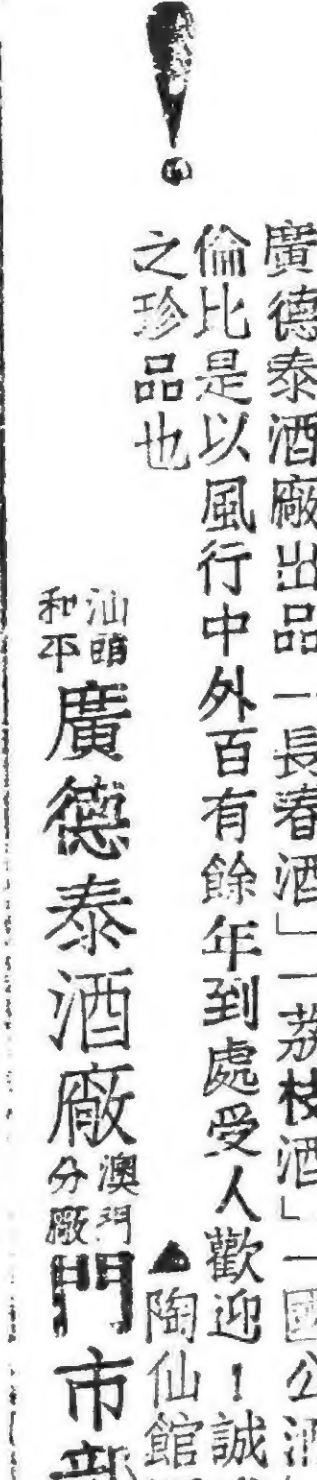 ！
廣德泰酒廠出品「長春酒」「荔枝酒」「國公酒
倫比是以風行中外百有餘年到處受人歡迎！誠
之珍品也
▲陶仙館
汕頭
和平
廣德泰酒廠
澳門
分廠
門市部